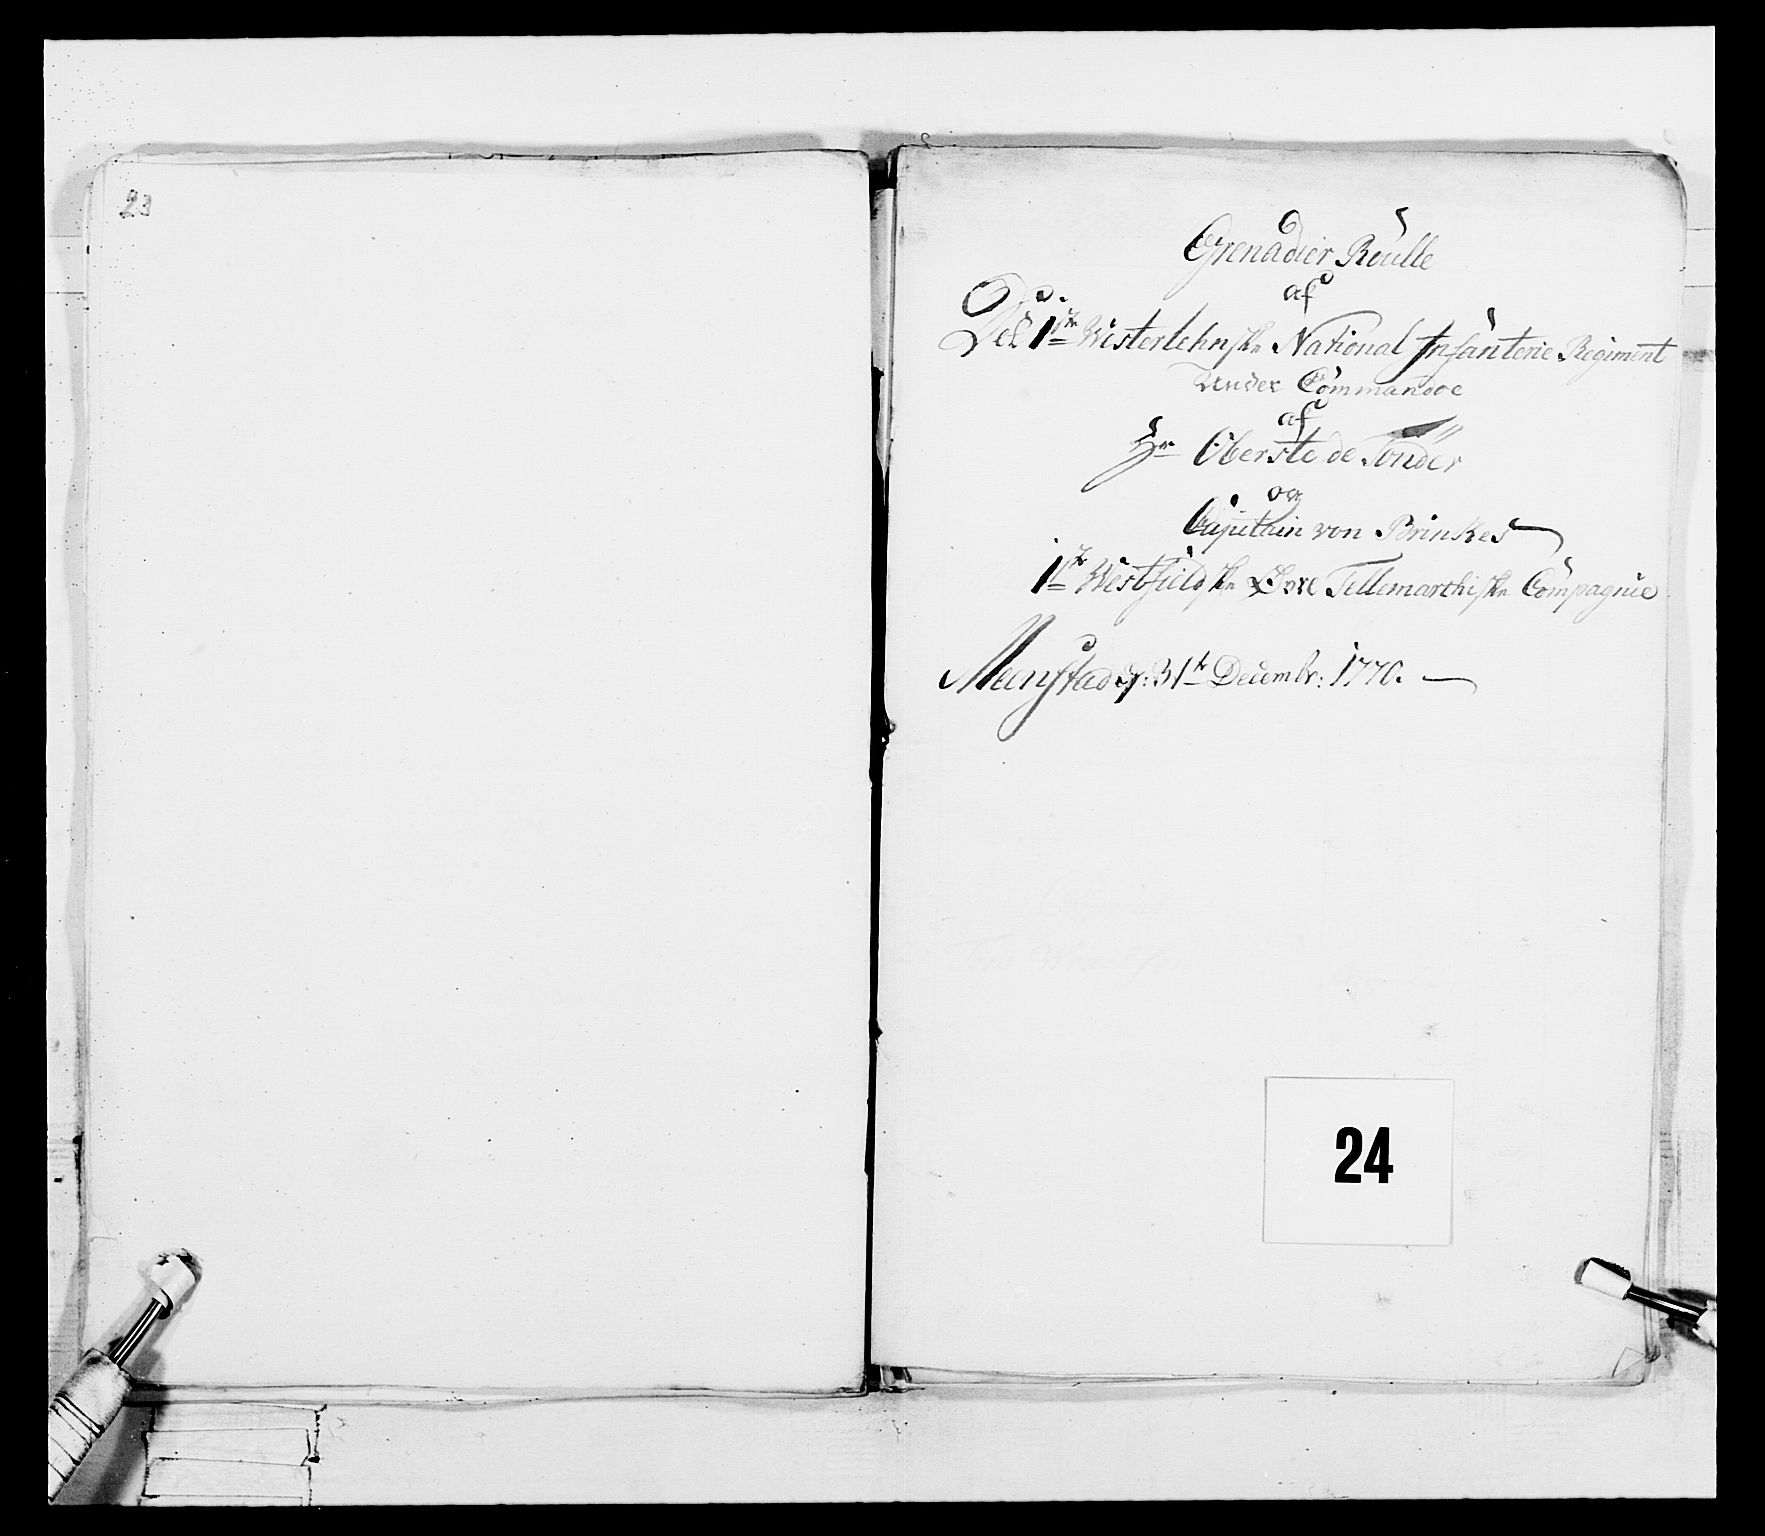 23
Grenadier Roulle
af
Det 1ste Westerlehnske National Infanterie Regiment
Under Commandoe
af
Hr Oberste de Tonder
og
Capitain von Brinkes
1ste Westfieldske Øvre Tellemarchiske Compagnie
Meenstad d: 31te Decembr: 1770.
24